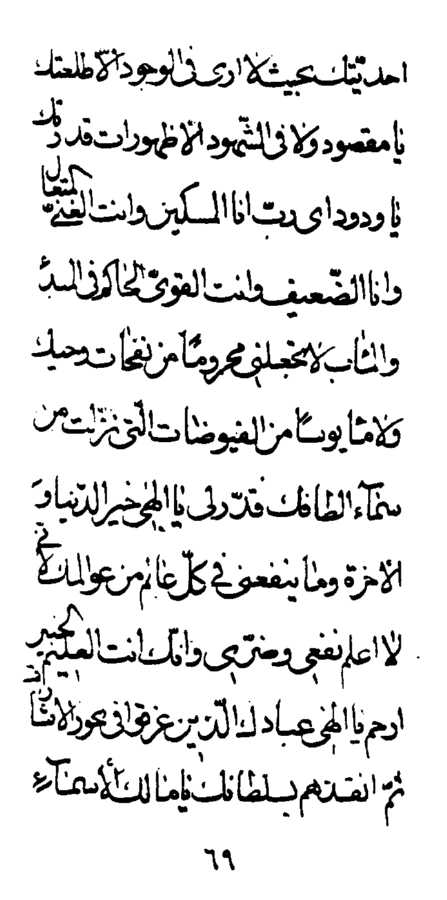 احديّتك بحيث لا ارى فى الوجود الّا طلعتك
يا مقصود ولا فى الشّهود الّا ظهورات قدرتك
يا ودود اى ربّ انا المسكين وانت الغنىّ المتعال
وانا الضّعيف وانت القوىّ الحاكم فى المبدء
والمئاب لا تجعلنى محروماً من نفحات وحيك
ولا مأيوساً من الفيوضات الّتى نزّلت من
سمآء الطافك قدّر لى يا الهى خير الدّنيا و
الاخرة وما ينفعنى فى كلّ عالم من عوالمك لانّى
لا اعلم نفعى وضرّى وانّك انت العليم الخبير
ارحم يا الهى عبادك الّذين غرقوا فى بحور الاشارات
ثمّ انقذهم بسلطانك يا مالك الاسمآء
٦٩